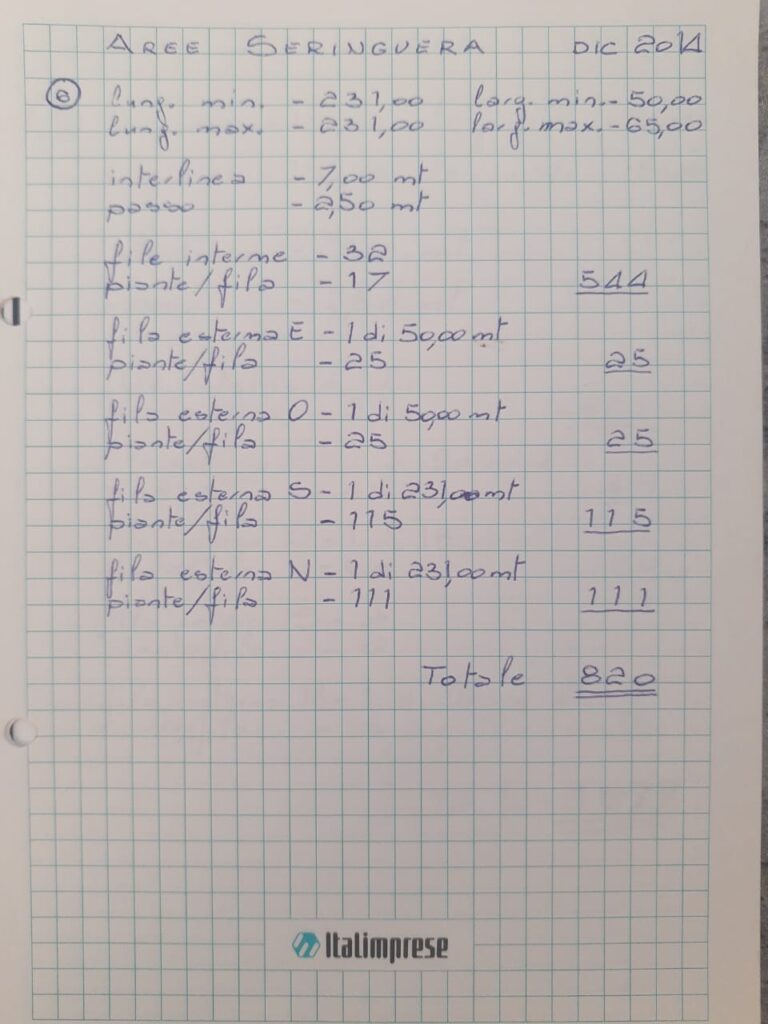 AREE SERINGUERA DIC 2014
e lung. min. - 231,00 larg. min. - 50,00
lung. max. - 231,00 larg. max. - 65,00
interlinea - 7,00 mt
passo - 2,50 mt
file interne - 32
piante/fila - 17 544
fila esterna E - 1 di 50,00 mt
piante/fila - 25 25
fila esterna O - 1 di 50,00 mt
piante/fila - 25 25
fila esterna S - 1 di 231,00 mt
piante/fila - 115 115
fila esterna N - 1 di 231,00 mt
piante/fila - 111 111
Totale 820
Italimprese